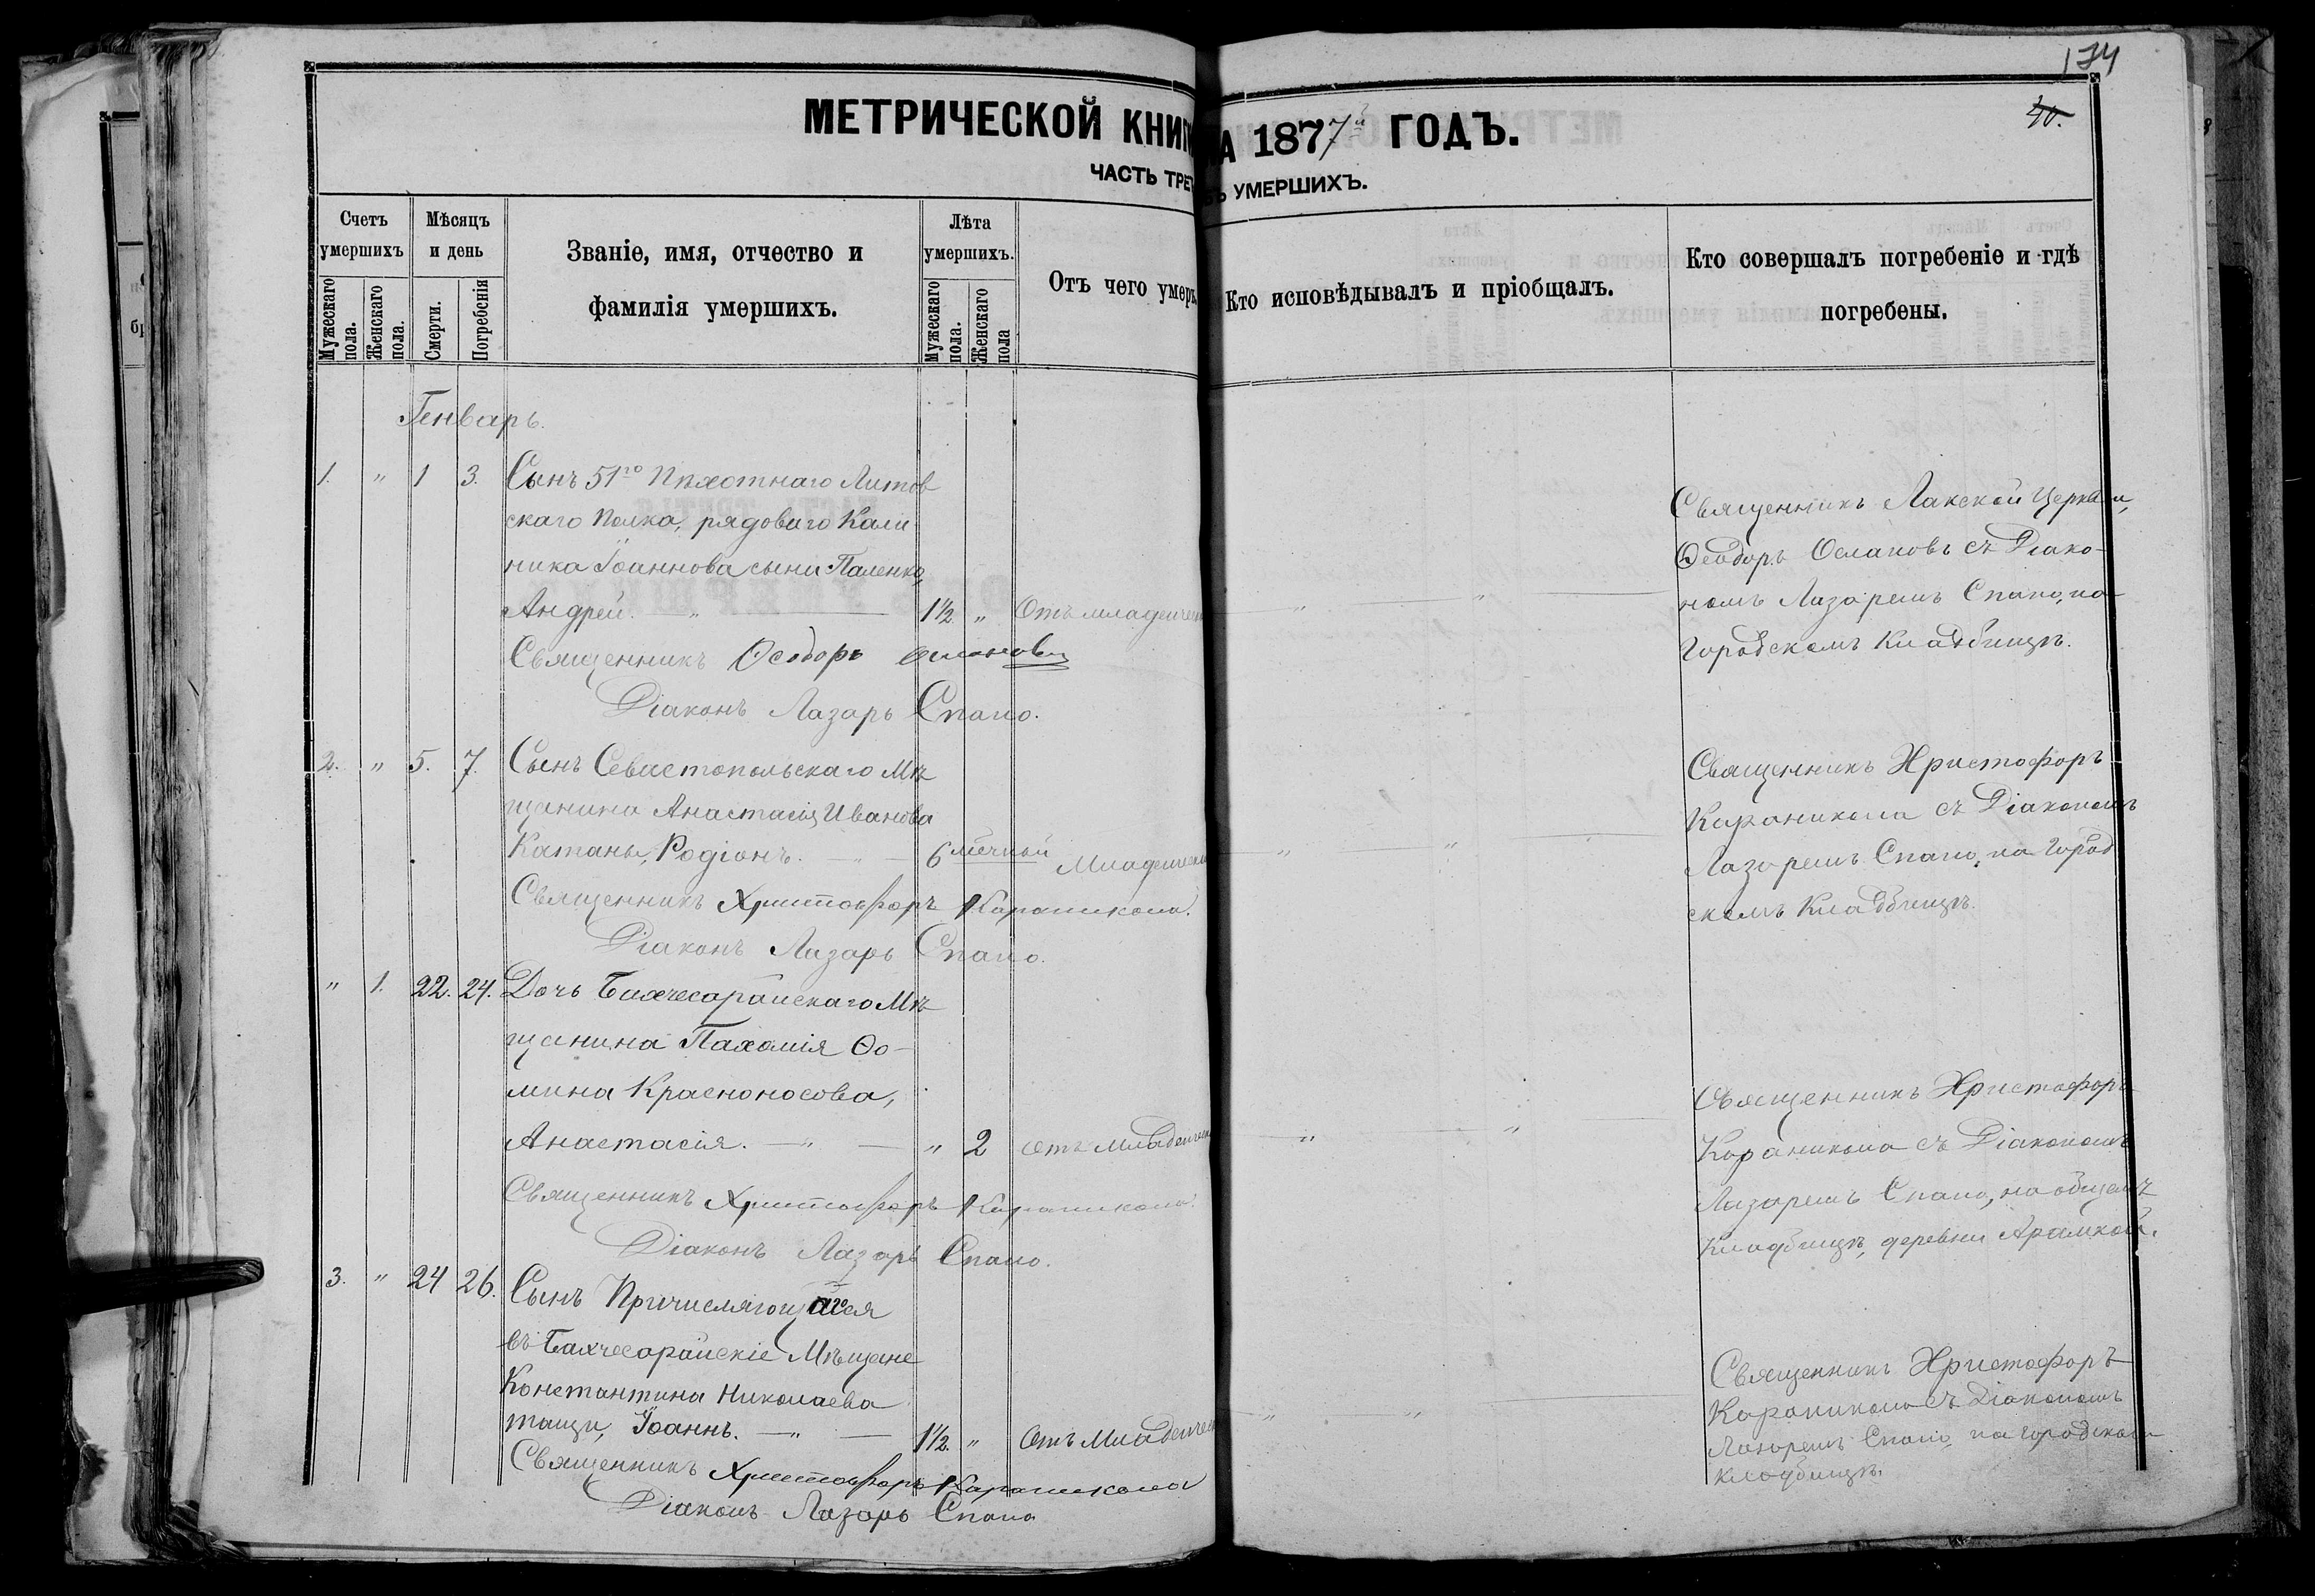 174
40.
МЕТРИЧЕСКОЙ КНИГ А 1877й ГОДЪ.
ЧАСТЬ ТРЕТ УМЕРШИХЪ.
Счетъ умершихъ
Мужескаго пола.
Женскаго пола.
Мѣсяцъ и день
Смерти.
Погребенія
Званіе, имя, отчество и
фамилія умершихъ.
Лѣта умершихъ.
Мужескаго пола.
Женскаго пола
Отъ чего умеръ
Кто исповѣдывалъ и пріобщалъ.
Кто совершалъ погребеніе и гдѣ
погребены.
Генварь.
1. " 1 3. Сынъ 51го Пѣхотнаго Литов
скаго Полка, рядоваго Кали
ника Іоаннова сына Паленко,
Андрей. — " — 1½ " Отъ младенчес
Священникъ Ѳеодоръ
Діаконъ Лазарь Спано.
Священникъ Лакской Церкви,
Ѳеодоръ съ Діако-
номъ Лазаремъ Спано, на
Городскомъ Кладбищѣ.
2. " 5. 7. Сынъ Севастопольскаго Мѣ
щанина Анастасія Иванова
Катаны, Родіонъ. — " — 6 мѣсчной Младенчес
Священникъ Христофоръ Караникола.
Діаконъ Лазарь Спано.
Священникъ Христофоръ
Караникола съ Діакономъ
Лазаремъ Спано, на Город
скомъ Кладбищѣ.
" 1. 22. 24. Дочь Бахчесарайскаго Мѣ
щанина Пахомія Ѳо-
мина Красноносова,
Анастасія. — " — " 2 Отъ Младенчес
Священникъ Христофоръ Караникола.
Діаконъ Лазарь Спано.
Священникъ Христофоръ
Караникола съ Діакономъ
Лазаремъ Спано, на общемъ
Кладбищѣ, деревни
3. " 24 26. Сынъ Причисляющагося
въ Бахчесарайскіе Мѣщане
Константина Николаева
Іоаннъ. — " — 1½. " Отъ Младенчес
Священникъ Христофоръ Караникола
Діаконъ Лазарь Спано
Священникъ Христофоръ
Караникола съ Діакономъ
Лазаремъ Спано, на Городскомъ
кладбищѣ.